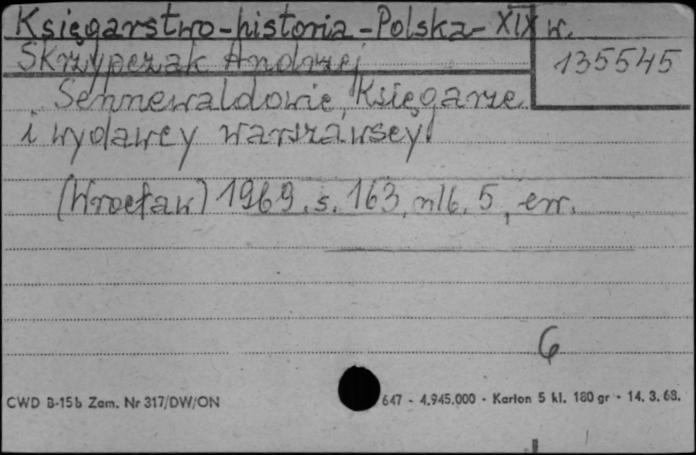 Księgarstwo-historia-Polska-XIX w.
Skrzypczak Andrzej
135545
Sennewaldowie, księgarze
i wydawcy warszawscy.
(Wrocław) 1969, s. 163, nlb. 5, err.
6
CWD B-15b Zam. Nr 317/DW/ON
647 - 4.945.000 - Karton 5 kl. 180 gr - 14. 3. 68.